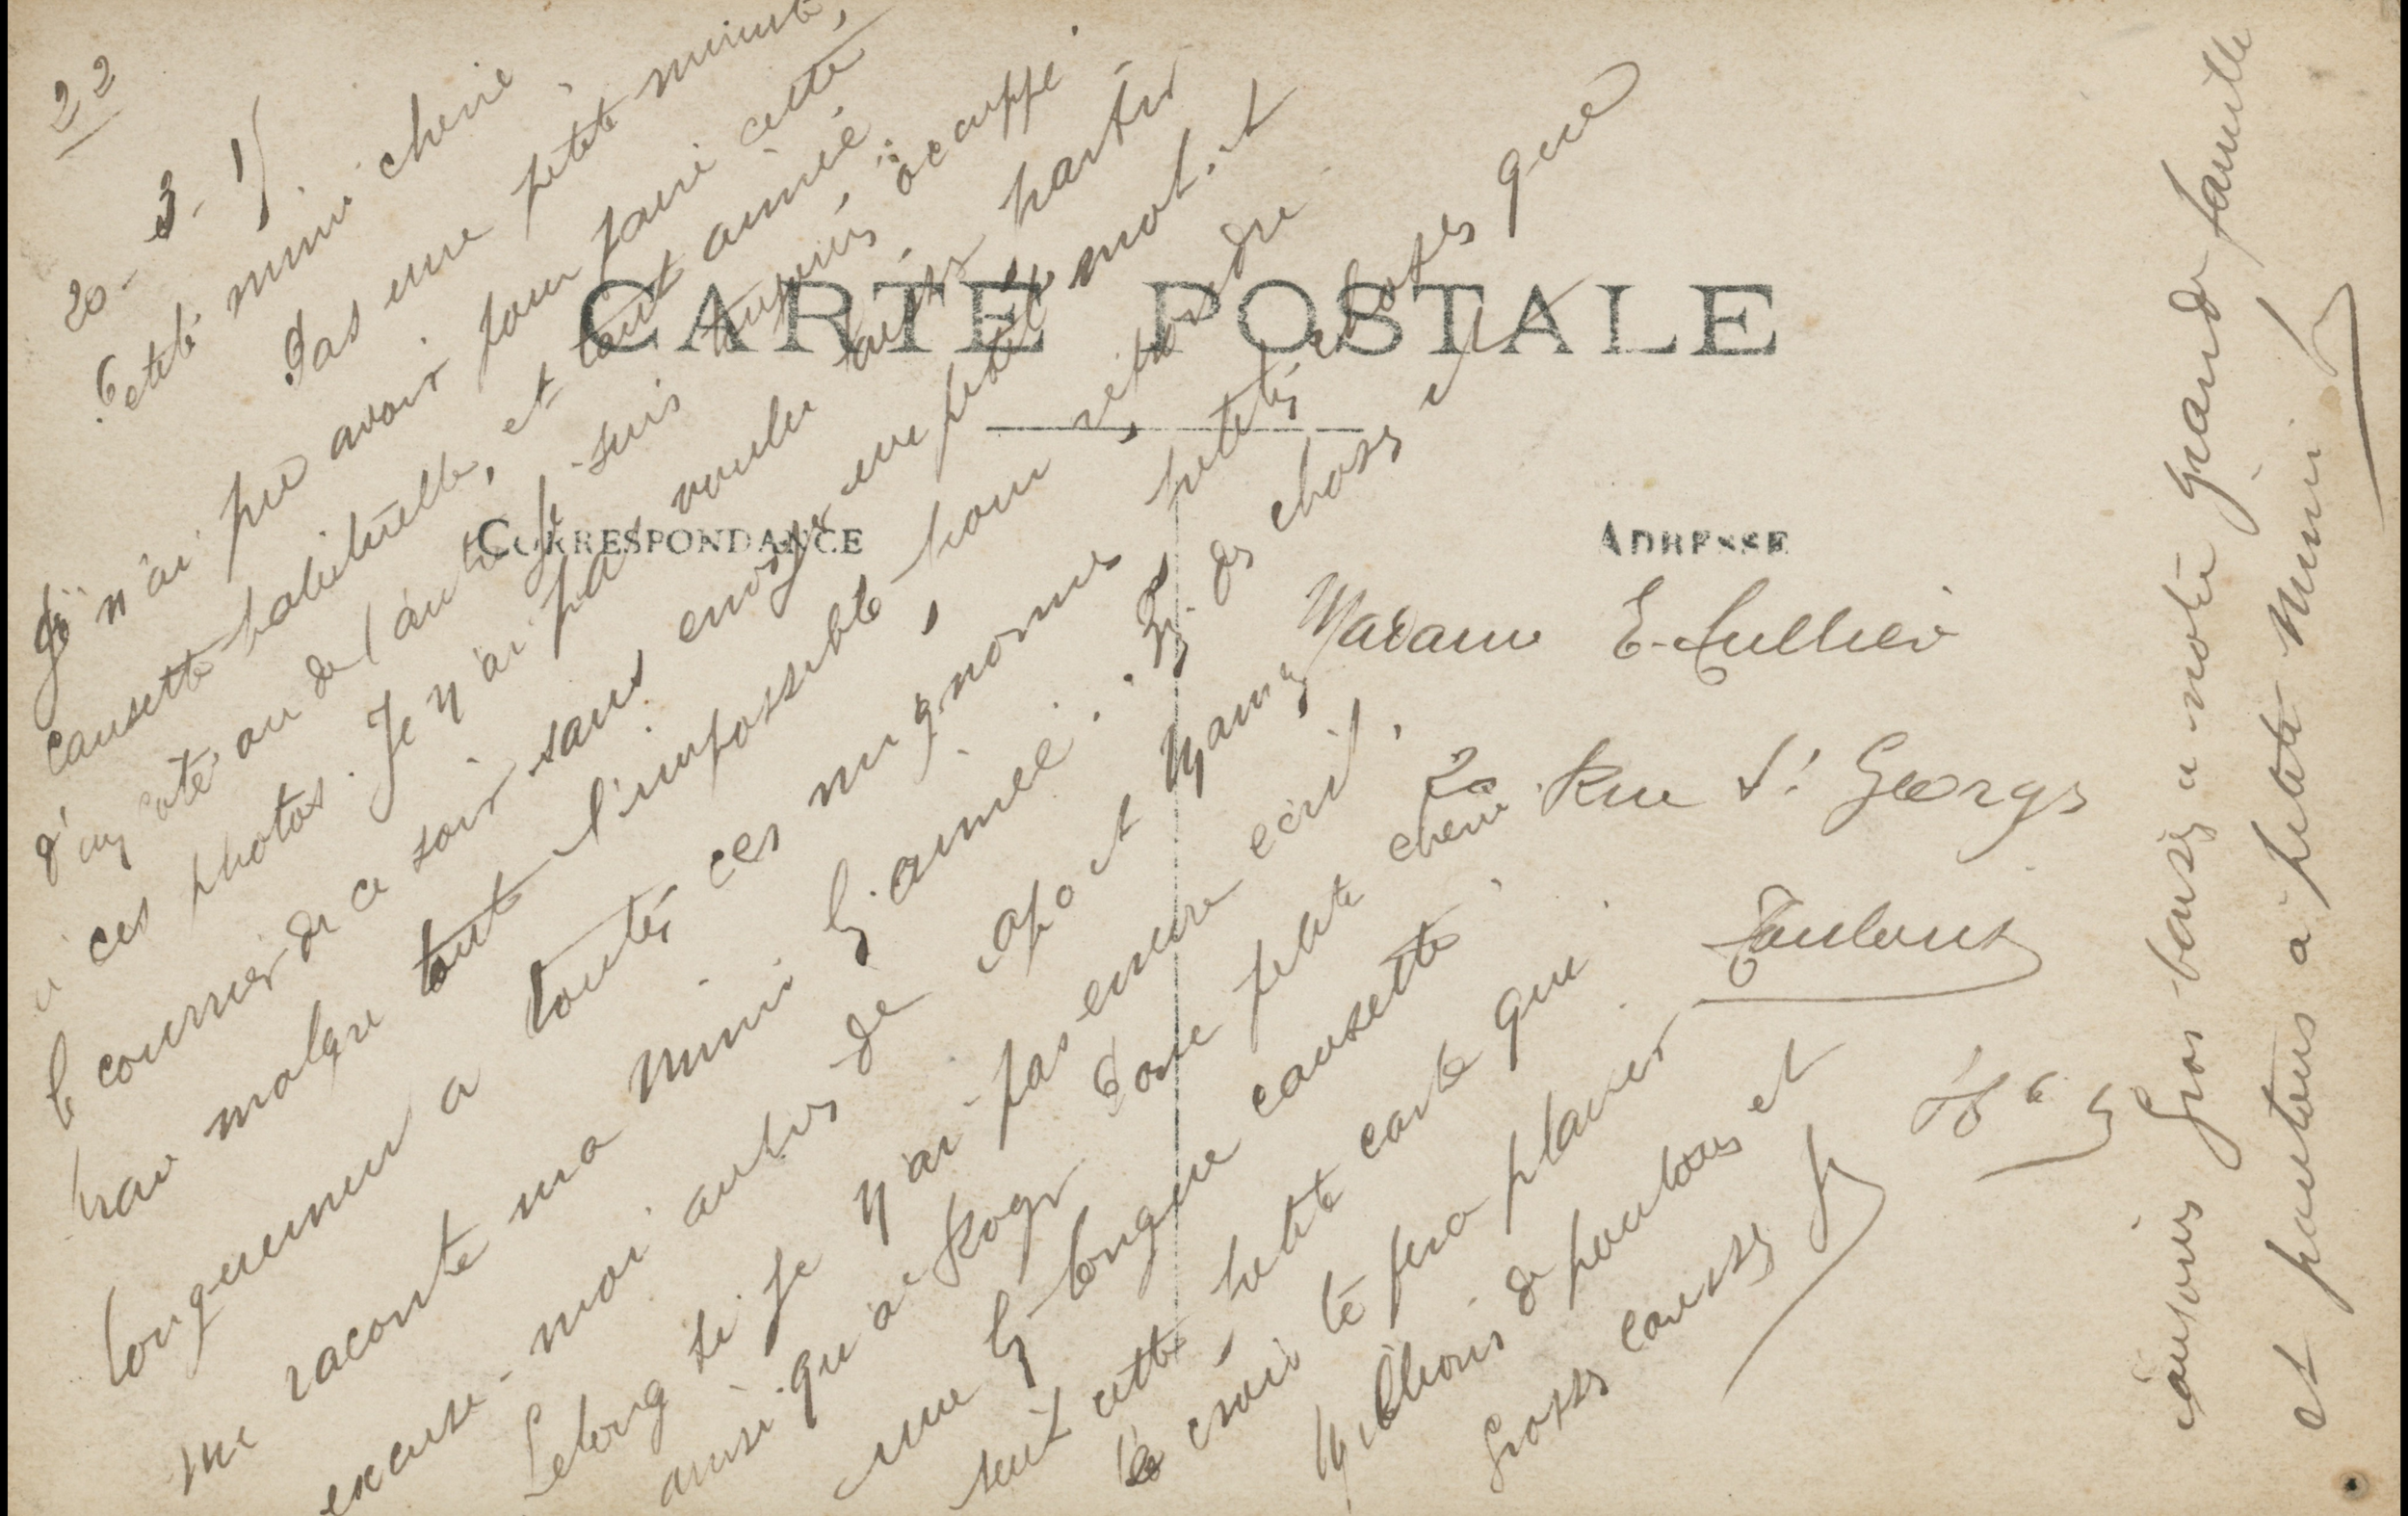 22
20-3-15
Petite mimi cherie
Pas une petite minute,
je n'ai pu avoir pour faire cette
causette habituelle, et tant aimée
d'un coté ou de l'autre je suis toujours occuppé
a ces photos. Je n'ai pas voulu laisser partir
le courrier de ce soir sans envoyer un petit mot. et
malgre tout l'impossible pour repondre
longuement a toutes ces mignonnes petites choses que
me raconte ma mimi bien aimée.
excuse-moi auprés de papa et maman
Lelong si je n'ai pas encore ecrit,
ainsi qu'à Roger
une longue causette
suit cette petite carte qui
je crois te fera plaisir
Millions de poutous et
grosses
CARTE POSTALE
CORRESPONDANCE
ADRESSE
Madame E.
20 Rue St Georges
Toulouse
toujours Gros baisers a notre grande famille
et poutous a petite Mimi